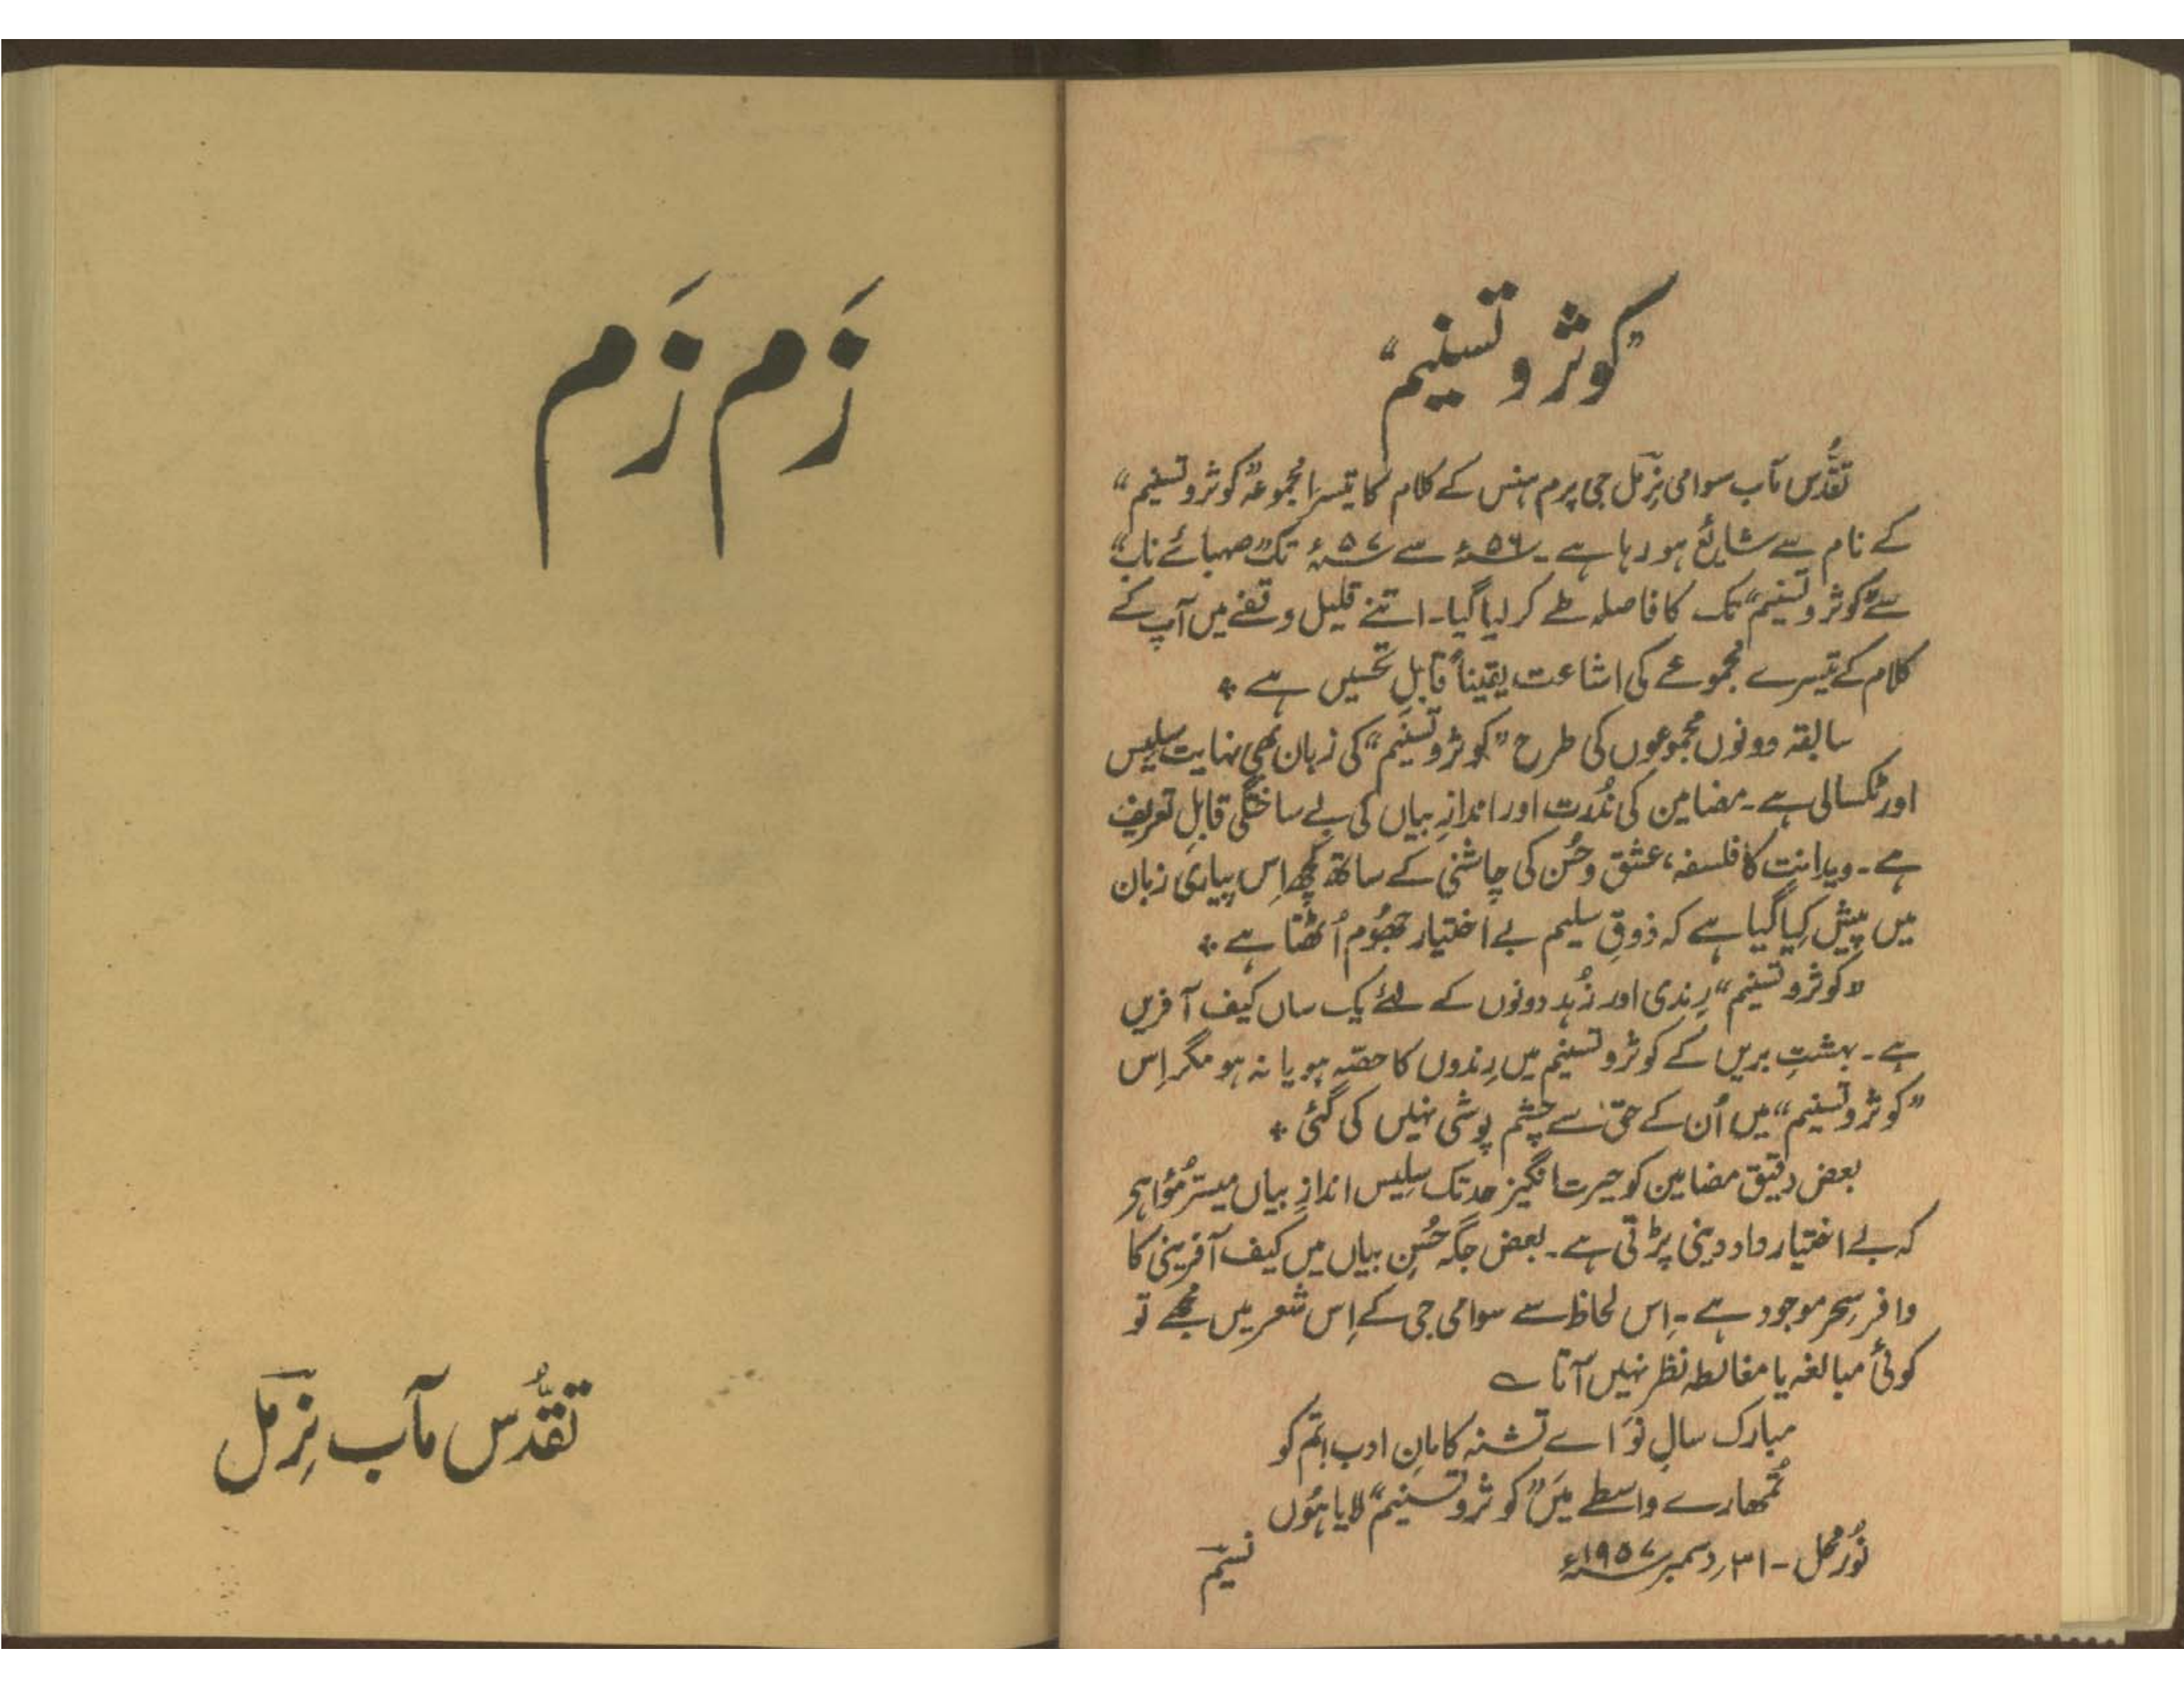 ”کوثر و تسنیم“
تقدُّس مآب سوامی نِرمل جی پرم ہنس کے کلام کا تیسرا مجموعہ ”کوثر و تسنیم“
کے نام سے شایع ہو رہا ہے۔ ۵۶ء سے ۵۷ء تک ”صہبائے ناب“
سے ”کوثر و تسنیم“ تک کا فاصلہ طے کر لیا گیا۔ اتنے قلیل وقفے میں آپ کے
کلام کے تیسرے مجموعے کی اشاعت یقیناً قابلِ تحسیں ہے ٭
سابقہ دونوں مجموعوں کی طرح ”کوثر و تسنیم“ کی زبان بھی نہایت سلیس
اور ٹکسالی ہے۔ مضامین کی نُدرت اور اندازِ بیاں کی بے ساختگی قابلِ تعریف
ہے۔ ویدانت کا فلسفہ، عشق و حُسن کی چاشنی کے ساتھ کُچھ اِس پیاری زبان
میں پیش کِیا گیا ہے کہ ذوقِ سلیم بے اختیار جھُوم اُٹھتا ہے ٭
”کوثر و تسنیم“ رِندی اور زُہد دونوں کے لئے یک ساں کیف آفریں
ہے۔ بہشتِ بریں کے کوثر و تسنیم میں رِندوں کا حصّہ ہو یا نہ ہو مگر اِس
”کوثر و تسنیم“ میں اُن کے حق سے چشم پوشی نہیں کی گئی ٭
بعض دقیق مضامین کو حیرت انگیز حد تک سلیس اندازِ بیاں میسّر ہُؤا ہے
کہ بے اختیار داد دینی پڑتی ہے۔ بعض جگہ حُسنِ بیاں میں کیف آفرینی کا
وافر سِحر موجود ہے۔ اِس لحاظ سے سوامی جی کے اِس شعر میں مُجھے تو
کوئی مبالغہ یا مغالطہ نظر نہیں آتا ؎
مبارک سالِ نَو اے تشنہ کامانِ ادب! تم کو
تُمھارے واسطے مَیں ”کوثر و تسنیم“ لایا ہُوں
نُور محل - ۳۱ دسمبر ۱۹۵۷ء
نسیم
زَم زَم
تقدُّس مآب نِرمل